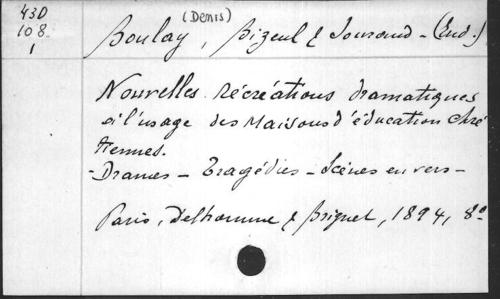 43D
108
1
(Denis)
Boulay, Bizeul & Jouraud - (Eud.)
Nouvelles Récréations dramatiques
à l'usage des Maisons d'éducation chré
tiennes.
- Drames - Tragédies - Scènes en vers -
Paris, Delhomme & Briguet, 1894, 8º